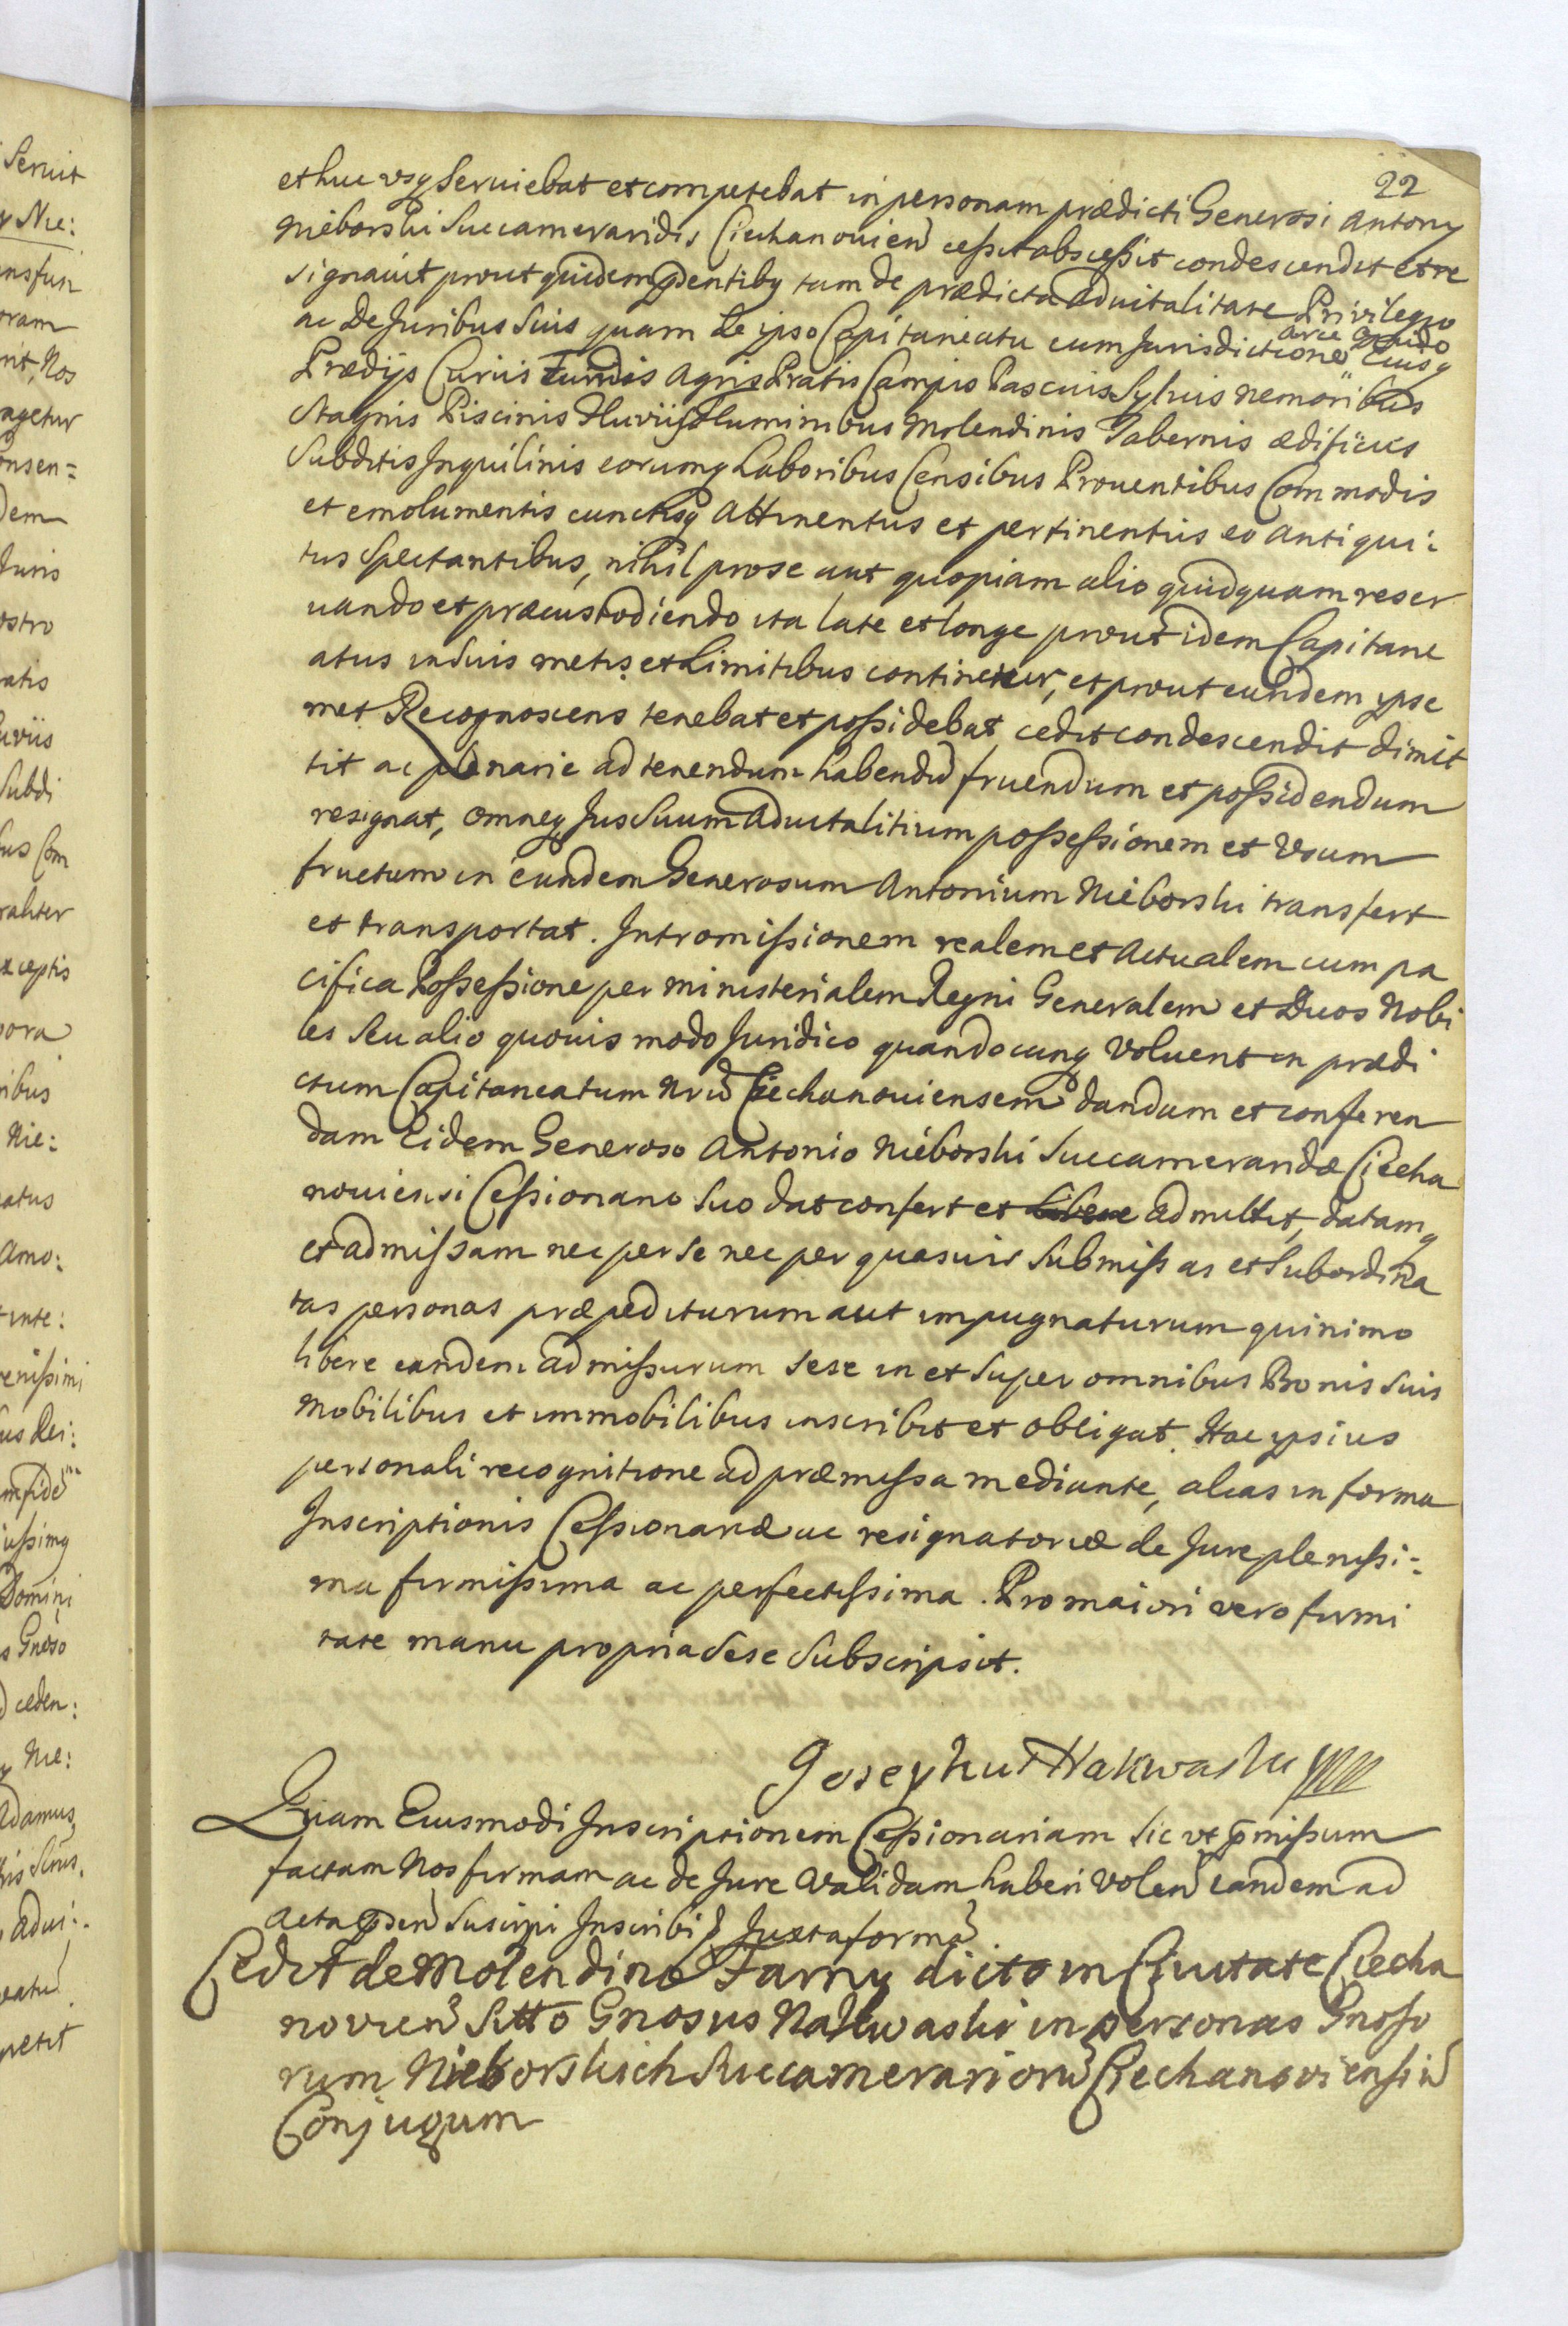 22
et huc usq Seruiebat et competebat in personam prædicti Generosi Antony
Nieborski Succameraridis Ciechanouien cessit abscessit condescendit et re
signauit prout quidem pdentibq tam de prædicta Aduitalitate Privilegio
ac De Juribus Suis quam de ipso Capitaneatu cum Jurisdictione Arce Grodo Eiusq
Prædijs Curiis Fundis Agris Pratis Campis Pascuis Syluis Nemoribus
Stagnis Piscinis Fluviis Fluminibus Molendinis Tabernis ædificiis
Subditis Inquilinis eorumq Laboribus Censibus Prouentibus Commodis
et emolumentis cunctisq Attinentiis et pertinentiis eo Antiqui:
tus Spectantibus, nihil pro se aut quopiam alio quidquam reser
uando et præcustodiendo ita late et longe prout idem Capitane
atus in Suis metis et Limitibus continetur, et prout eundem ipse
met Recognoscens tenebat et possidebat, cedit condescendit dimit
tit ac plenarie ad tenendum habendu fruendum et possidendum
resignat, omneq Jus Suum Aduitalitium possessionem et Usum
fructum in eundem Generosum Antonium Nieborski transfert
et transportat. Intromissionem realem et Actualem cum pa
cifica Possessione per ministerialem Regni Generalem et Duos Nobi
les Seu alio quouis modo Juridico quandocunq voluerit in prædi
ctum Capitaneatum Nrū Ciechanouiensem dandam et conferen
dam Eidem Generoso Antonio Nieborski Succamerandæ Ciecha
nouiensi Cessionario Suo dat confert et libere admittit, datamq
et admissam nec per se nec per quasuis Submissas et Subordina
tas personas præpediturum aut impugnaturum quinimo
libere eandem admissurum sese in et Super omnibus Bonis Suis
Mobilibus et immobilibus inscribit et obligat. Hac ipsius
personali recognitione ad præmissa mediante, alias in forma
Inscriptionis Cessionariæ ac resignatoriæ de Jure plenissi:
ma firmissima ac perfectissima. Pro maiori vero firmi
tate manu propria Sese Subscripsit.
Josephus Nakwaski
Quam Eiusmodi Inscriptionem Cessionariam Sic ut pmissum
factam Nos firmam ac de Jure Validam haberi Volen eandem ad
Acta pden Suscipi Inscribi Juxta forma
Cedit de Molendino Farny dicto in Ciuitate Ciecha
novien Sitto Gnosus Nakwaski in personas Gnoso
rum Nieborskich Succamerarioru Ciechanoviensiu
Conjugum